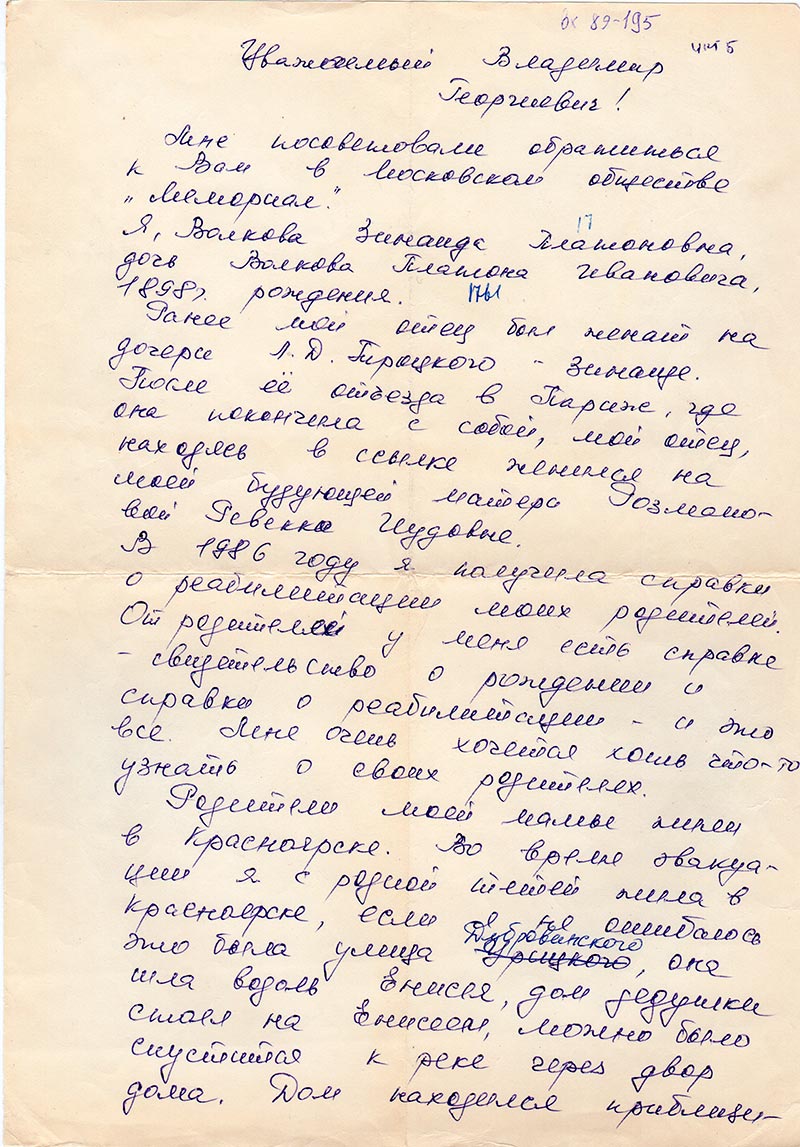 вх 89-195
Уважаемый Владимир
Георгиевич!
Мне посоветовали обратиться
к Вам в Московском обществе
„Мемориал".
Я, Волкова Зинаида Платоновна,
дочь Волкова Платона Ивановича,
1898г. рождения.
Ранее мой отец был женат на
дочери Л.Д. Троцкого - Зинаиде.
После её отъезда в Париж, где
она покончила с собой, мой отец,
находясь в ссылке женился на
моей будующей матери Розмано-
вой Ревекке Иудовне.
В 1986 году я получила справки
о реабилитации моих родителей.
От родителей у меня есть справке
- свидетельство о рождении и
справки о реабилитации - и это
все. Мне очень хочется хоть что-то
узнать о своих родителях.
Родители моей мамы жили
в Красноярске. Во время эвакуа-
ции я с родной тётей жила в
Красноярске, если я не ошибалось
Дубровинского
это была улица Урицкого, она
шла вдоль Енисея, дом дедушки
стоял на Енисеем, можно было
спуститься к реке через двор
дома. Дом находился приблизи-